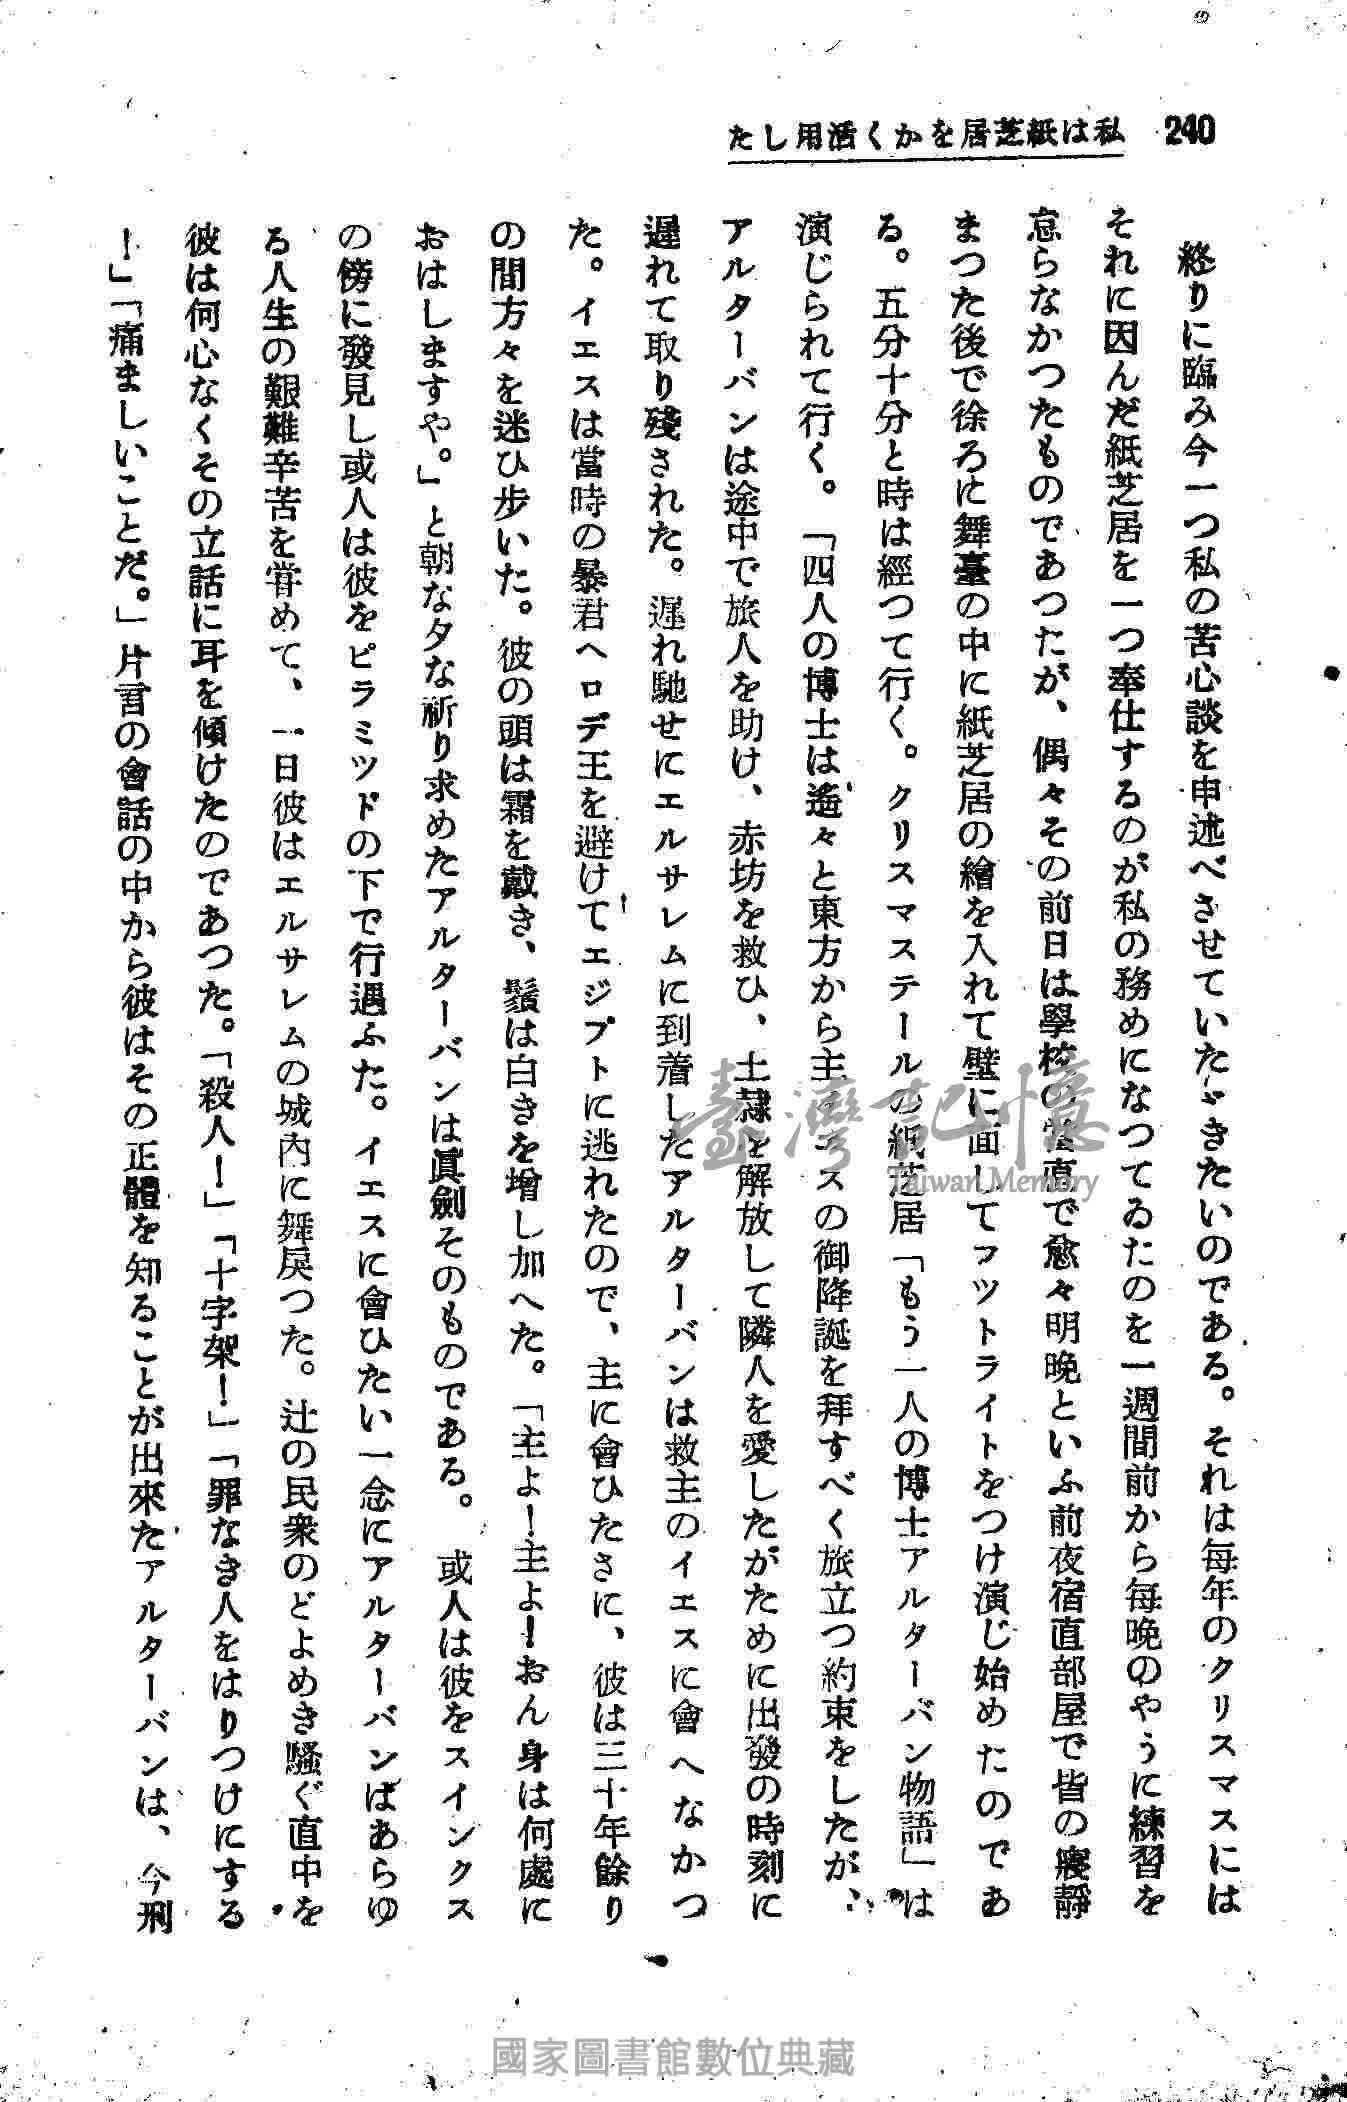 240 私は紙芝居をかく活用した
終りに臨み今一つ私の苦心談を申述べさせていたゞきたいのである。それは毎年のクリスマスには
それに因んだ紙芝居を一つ奉仕するのが私の務めになつてゐたのを一週間前から毎晩のやうに練習を
怠らなかつたものであつたが、偶々その前日は學校の當直で愈々明晩といふ前夜宿直部屋で皆の寢靜
まつた後で徐ろに舞臺の中に紙芝居の繪を入れて壁に面してフツトライトをつけ演じ始めたのであ
る。五分十分と時は經つて行く。クリスマステールの紙芝居「もう一人の博士アルターバン物語」は
演じられて行く。「四人の博士は遙々と東方から主イエスの御降誕を拜すべく旅立つ約束をしたが、
アルターバンは途中で旅人を助け、赤坊を救ひ、土隷を解放して隣人を愛したがために出發の時刻に
遲れて取り殘された。遲れ馳せにエルサレムに到着したアルターバンは救主のイエスに會へなかつ
た。イエスは當時の暴君ヘロデ王を避けてエジプトに逃れたので、主に會ひたさに、彼は三十年餘り
の間方々を迷ひ歩いた。彼の頭は霜を戴き、鬚は白きを增し加へた。「主よ！主よ！おん身は何處に
おはしますや。」と朝な夕な祈り求めたアルターバンは眞劍そのものである。 或人は彼をスインクス
の傍に發見し或人は彼をピラミツドの下で行遇ふた。イエスに會ひたい一念にアルターバンはあらゆ
る人生の艱難辛苦を甞めて、一日彼はエルサレムの城內に舞戾つた。辻の民衆のどよめき騷ぐ直中を
彼は何心なくその立話に耳を傾けたのであつた。「殺人！」「十字架！」「罪なき人をはりつけにする
！」「痛ましいことだ。」片言の會話の中から彼はその正體を知ることが出來たアルターバンは、今刑
臺灣記憶
Taiwan Memory
國家圖書館數位典藏